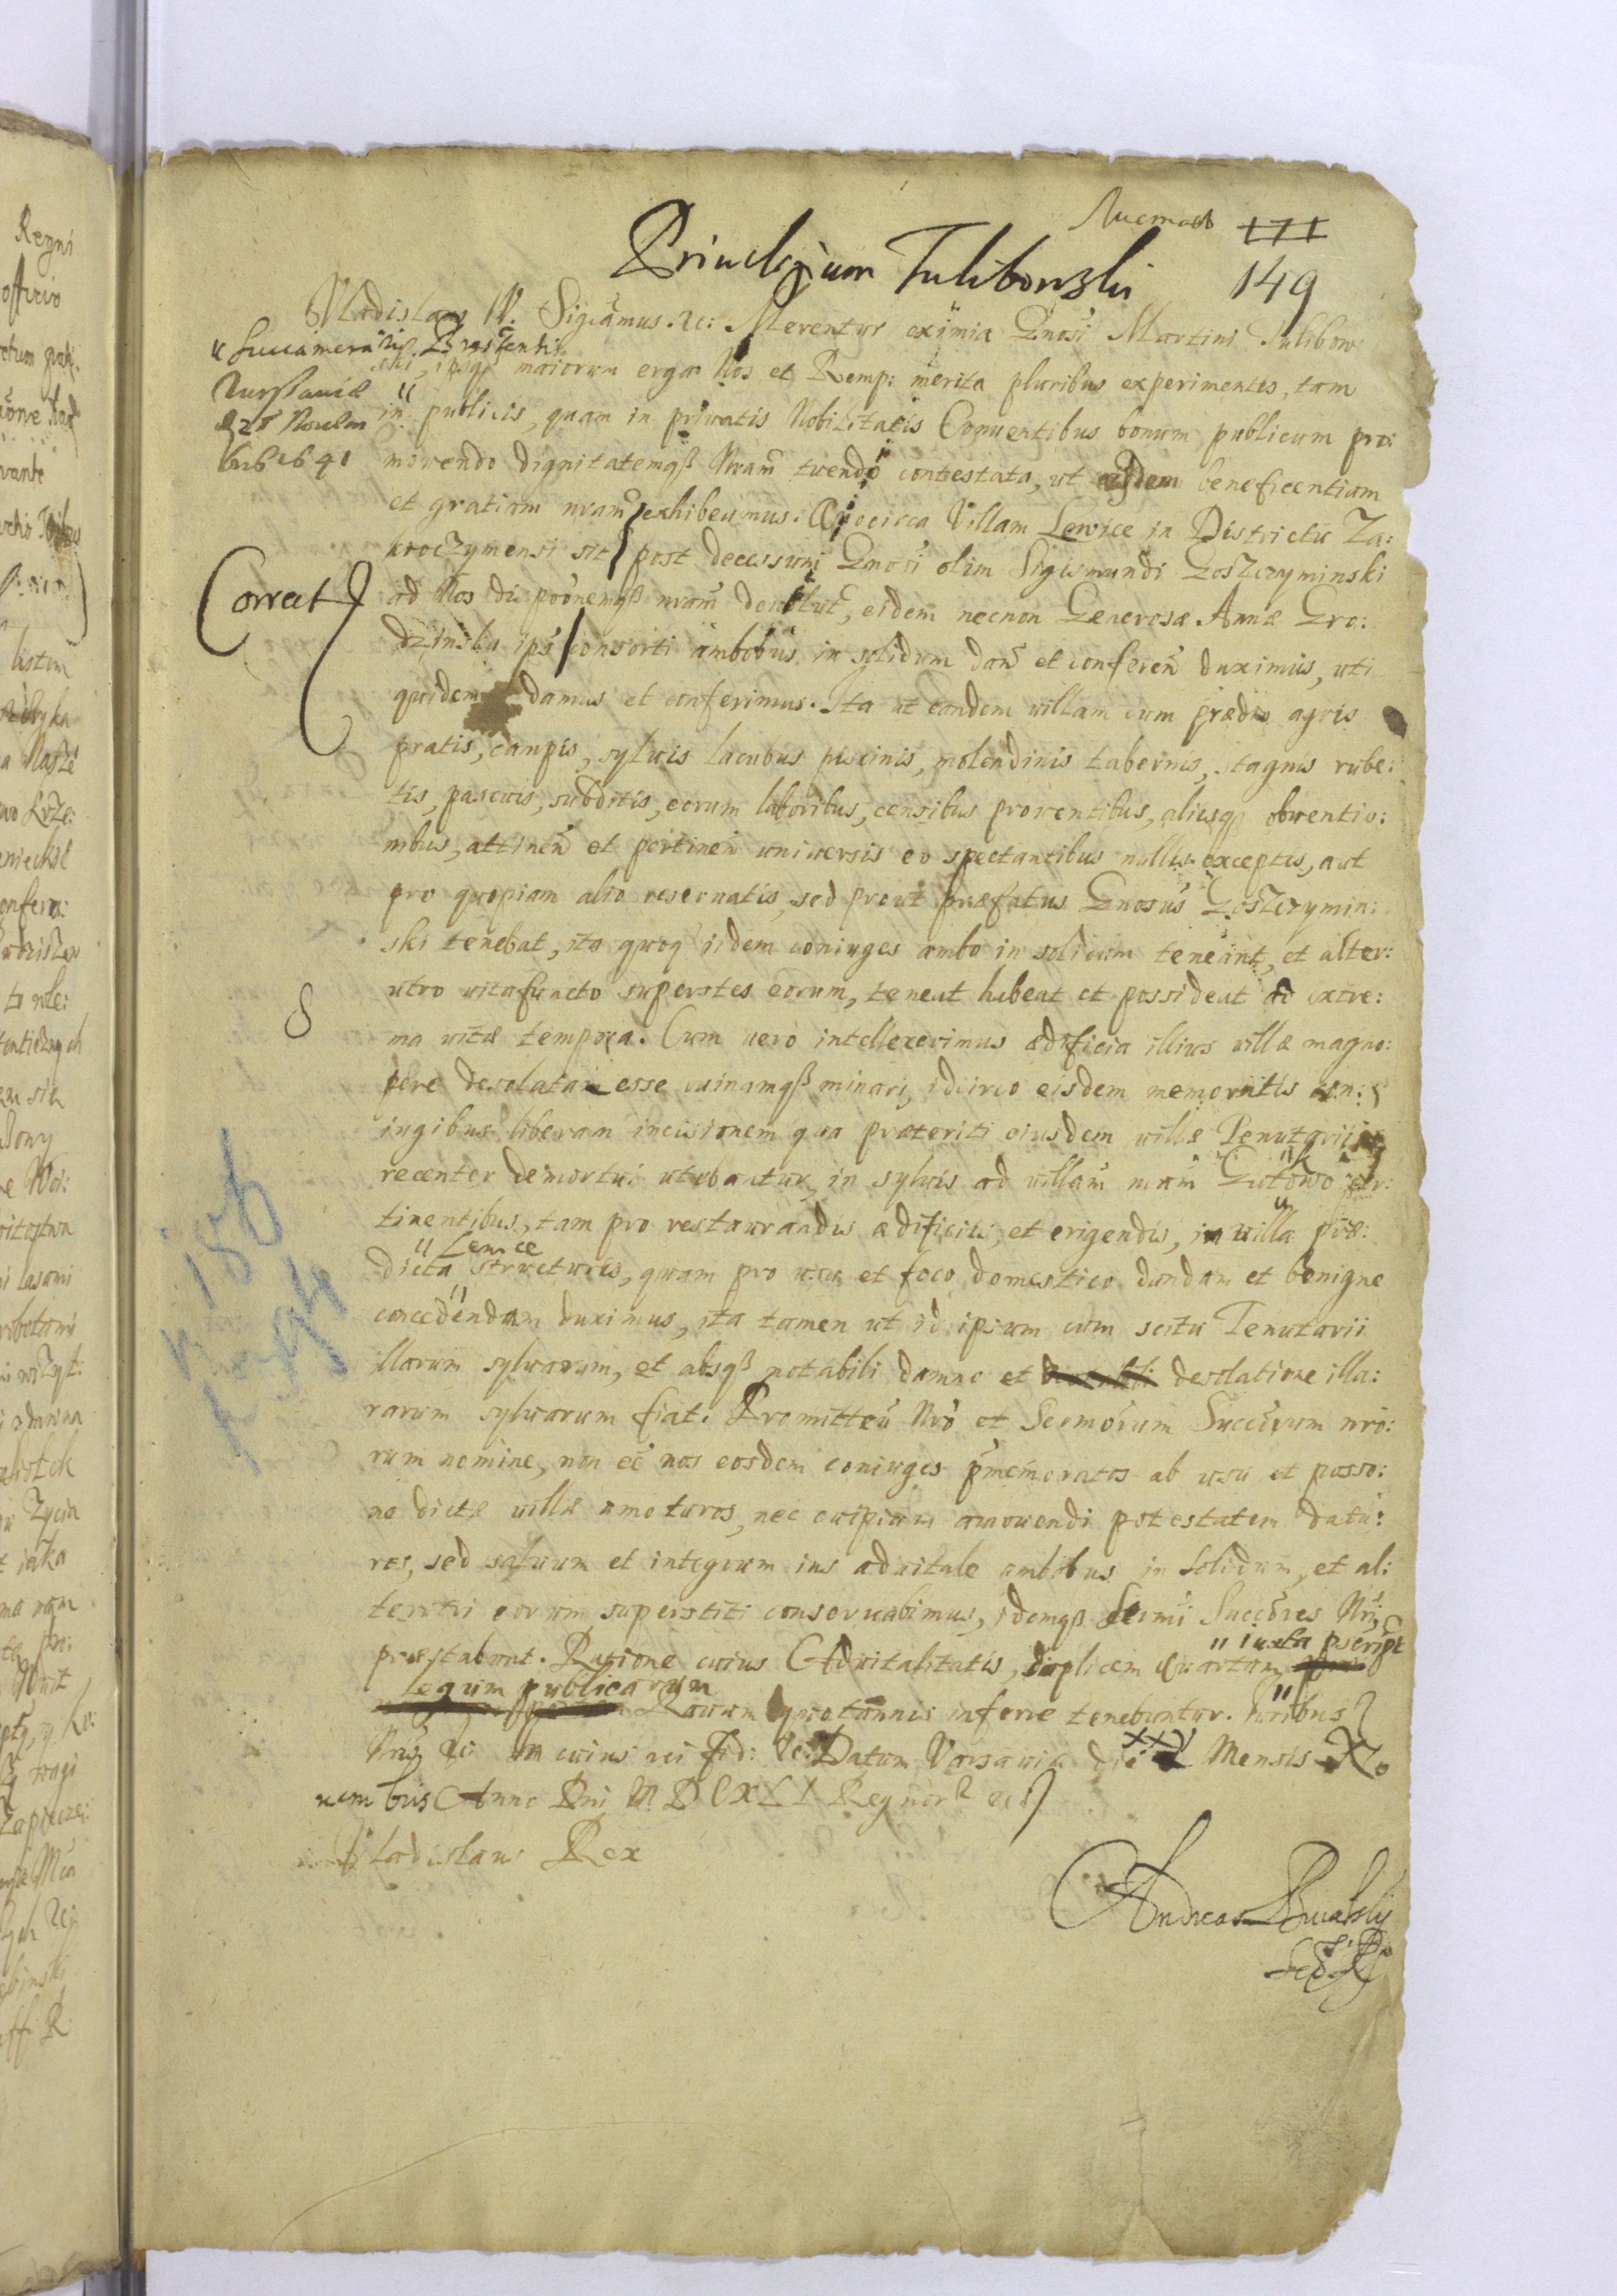 Листовъ 171
149
Priuilegium Tulibowski
Vladislaus IV. Significamus. &c: Merentur eximia Gnosi Martini Tulibow:
" Succamerarij Brestensis
ski, ipsiqȝ maiorum erga Nos et Remp: merita pluribus experimentis, tam
Varsauiæ
in publicis, quam in priuatis Nobilitatis Conuentibus bonum publicum pro:
25 Nouem
bris 1641
mouendo dignitatemqß Nram tuendo contestata, ut eisdem beneficentiam
et gratiam nram exhibeamus. Quocirca Villam Lewice in Districtu Za:
kroczymensi sit post decessum Gnosi olim Sigismundi Goszczyminski
Correct
ad Nos disponemqß nram deuolut, eidem necnon Generosæ Annæ Gro:
dzinska ips consorti ambobus in solidum dan et conferen duximus, uti
quidem damus et conferimus. Ita ut eandem uillam cum prædio agris
pratis, campis, syluis lacubus piscinis, molendinis tabernis, stagnis rube:
tis, pascuis, subditis, eorum laboribus, censibus prouentibus, aliisqȝ obuentio:
nibus, attinen et pertinen uniuersis eo spectantibus nullis exceptis, aut
pro quopiam alio reseruatis, sed prout præfatus Gnosus Goszczymin:
ski tenebat, ita quoqȝ iidem coniuges ambo in solidum teneant, et alter:
utro uitafuncto superstes eorum, teneat habeat et possideat ad extre:
ma uitæ tempora. Cum uero intellexerimus ædificia illius uillæ magno:
pere desolata esse ruinamqß minari, idcirco eisdem memoratis con:
iugibus liberam incisionem qua præteriti eiusdem uillæ Tenutarii
recenter demortui utebantur, in syluis ad uillam nram Gutowo per:
tinentibus, tam pro restaurandis ædificiis, et erigendis, in uilla præ:
" Lewice
dicta structuris, quam pro usu et foco domestico dandam et benigne
concedendam duximus, ita tamen ut id ipsum cum scitu Tenutarii
illarum syluarum, et absqß notabili damno et desolatione illa:
rarum syluarum fiat. Promitten Nro et Sermorum Succrum nro:
rum nomine, non ee nos eosdem coniuges pmemoratos ab usu et posso:
ne dictæ uillæ amoturos, nec cuipiam amouendi potestatem datu:
ros, sed saluum et integrum ius aduitale ambobus in solidum, et al:
terutri eorum superstiti conseruabimus, idemqß Sermi Succres Nri
præstabunt. Ratione cuius Aduitalitatis, duplicem quartam
" iuxta pscript
legum publicarum
Rauam quotannis inferre tenebuntur. Iuribus
Nris &c in cuius rei fid: &c: Datum Varsauiæ die XXV Mensis No
uembris Anno Dni M D C X L I Regnor ec
Vladislaus Rex
Andreas